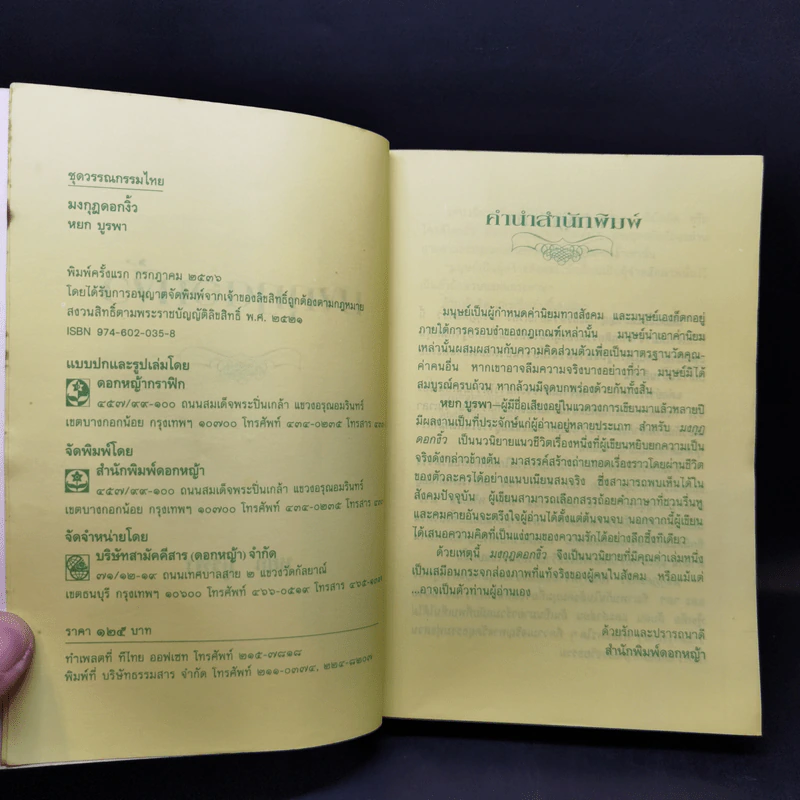 ชุดวรรณกรรมไทย
มงกุฎดอกงิ้ว
หยก บูรพา
พิมพ์ครั้งแรก กรกฎาคม ๒๕๓๖
โดยได้รับการอนุญาตจัดพิมพ์จากเจ้าของลิขสิทธิ์ถูกต้องตามกฎหมาย
สงวนสิทธิ์ตามพระราชบัญญัติลิขสิทธิ์ พ.ศ. ๒๕๒๑
ISBN 974-602-035-8
แบบปกและรูปเล่มโดย
ดอกหญ้ากราฟิก
๔๕๗/๙๙-๑๐๐ ถนนสมเด็จพระปิ่นเกล้า แขวงอรุณอมรินทร์
เขตบางกอกน้อย กรุงเทพฯ ๑๐๗๐๐ โทรศัพท์ ๔๓๔-๐๒๓๕ โทรสาร
จัดพิมพ์โดย
สำนักพิมพ์ดอกหญ้า
๔๕๗/๙๙-๑๐๐ ถนนสมเด็จพระปิ่นเกล้า แขวงอรุณอมรินทร์
เขตบางกอกน้อย กรุงเทพฯ ๑๐๗๐๐ โทรศัพท์ ๔๓๔-๐๒๓๕ โทรสาร
จัดจำหน่ายโดย
บริษัทสามัคคีสาร (ดอกหญ้า) จำกัด
๗๑/๑๒-๑๙ ถนนเทศบาลสาย ๒ แขวงวัดกัลยาณ์
เขตธนบุรี กรุงเทพฯ ๑๐๖๐๐ โทรศัพท์ ๔๖๖-๐๕๑๙ โทรสาร
ราคา ๑๒๕ บาท
ทำเพลตที่ ทีไทย ออฟเซท โทรศัพท์ ๒๑๕-๗๘๑๘
พิมพ์ที่ บริษัทธรรมสาร จำกัด โทรศัพท์ ๒๑๑-๐๓๗๔, ๒๒๔-๘๒๐๗
คำนำสำนักพิมพ์
มนุษย์เป็นผู้กำหนดค่านิยมทางสังคม และมนุษย์เองก็ตกอยู่
ภายใต้การครอบงำของกฎเกณฑ์เหล่านั้น มนุษย์นำเอาค่านิยม
เหล่านั้นผสมผสานกับความคิดส่วนตัวเพื่อเป็นมาตรฐานวัดคุณ-
ค่าคนอื่น หากเขาอาจลืมความจริงบางอย่างที่ว่า มนุษย์มิได้
สมบูรณ์ครบถ้วน หากล้วนมีจุดบกพร่องด้วยกันทั้งสิ้น
หยก บูรพา—ผู้มีชื่อเสียงอยู่ในแวดวงการเขียนมาแล้วหลายปี
มีผลงานเป็นที่ประจักษ์แก่ผู้อ่านอยู่หลายประเภท สำหรับ มงกุฎ
ดอกงิ้ว เป็นนวนิยายแนวชีวิตเรื่องหนึ่งที่ผู้เขียนหยิบยกความเป็น
จริงดังกล่าวข้างต้น มาสรรค์สร้างถ่ายทอดเรื่องราวโดยผ่านชีวิต
ของตัวละครได้อย่างแนบเนียนสมจริง ซึ่งสามารถพบเห็นได้ใน
สังคมปัจจุบัน ผู้เขียนสามารถเลือกสรรถ้อยคำภาษาที่ชวนรื่นหู
และคมคายอันจะตรึงใจผู้อ่านได้ตั้งแต่ต้นจนจบ นอกจากนี้ผู้เขียน
ได้เสนอความคิดที่เป็นแง่งามของความรักได้อย่างลึกซึ้งทีเดียว
ด้วยเหตุนี้ มงกุฎดอกงิ้ว จึงเป็นนวนิยายที่มีคุณค่าเล่มหนึ่ง
เป็นเสมือนกระจกส่องภาพที่แท้จริงของผู้คนในสังคม หรือแม้แต่
...อาจเป็นตัวท่านผู้อ่านเอง
ด้วยรักและปรารถนาดี
สำนักพิมพ์ดอกหญ้า